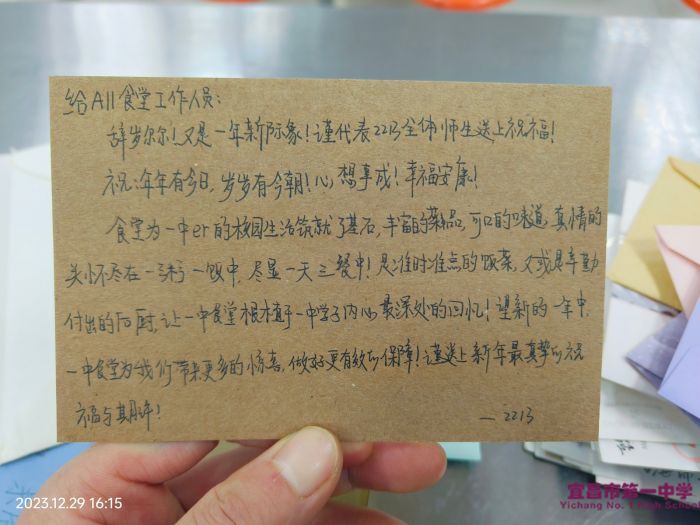 给All食堂工作人员：
辞岁尔尔！又是一年新际象！谨代表2213全体师生送上祝福！
祝：年年有今日，岁岁有今朝！心想事成！幸福安康！
食堂为一中er的校园生活筑就了基石，丰富的菜品，可口的味道，真情的
关怀尽在一粥一饭中，尽显一天三餐中！是准时准点的饭菜，又或是辛勤
付出的后厨，让一中食堂根植于一中学子内心最深处的回忆！望新的一年中，
一中食堂为我们带来更多的惊喜，做好更有效的保障！谨送上新年最真挚的祝
福与期许！
—2213
2023.12.29 16:15
宜昌市第一中学
Yichang No. 1 High School